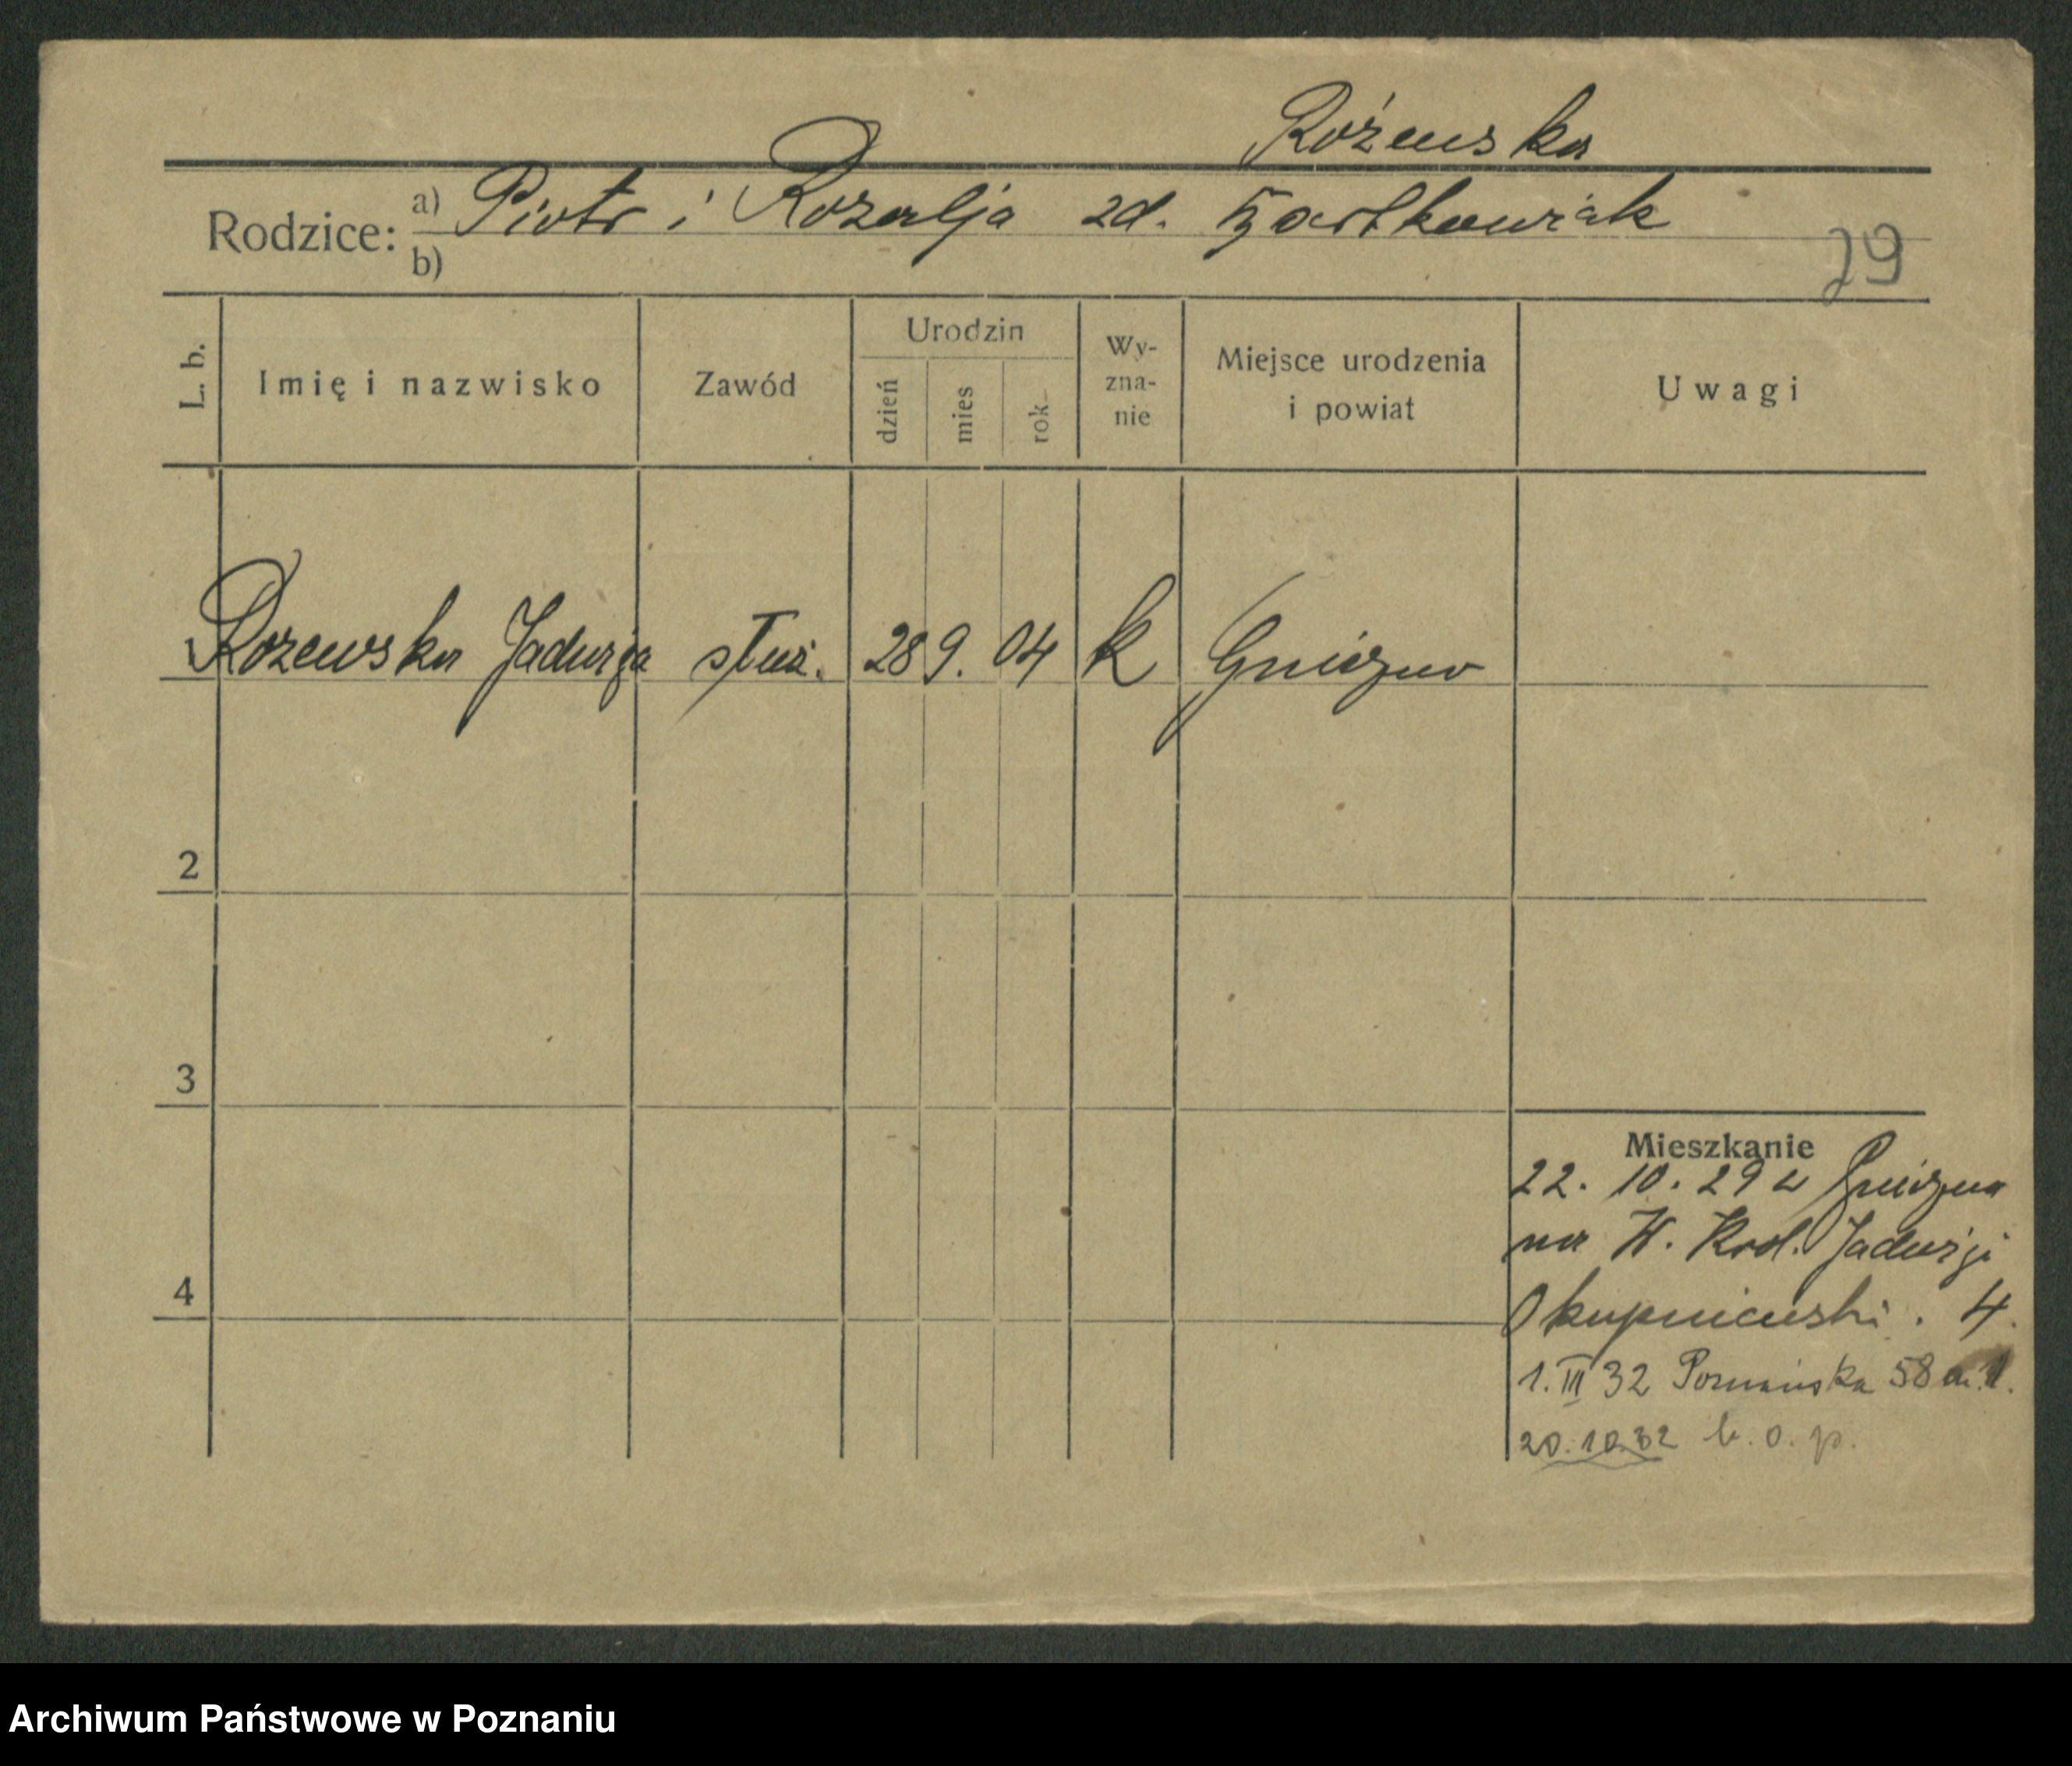 Rożewska
Rodzice: a) Piotr i Rozalja zd. Bartkowiak
b)
29
L. b.
Imię i nazwisko
Zawód
Urodzin
dzień
mies
rok
Wy-
zna-
nie
Miejsce urodzenia
i powiat
Uwagi
1 Rozewska Jadwiga służ. 28 9. 04 k Gniezno
2
3
4
Mieszkanie
22. 10. 29 z Gniezna
na W. Król. Jadwigi
Okupniewski. 4.
1. III 32 Poznańska 58 m. 1.
20.10.32 b. o. p.
Archiwum Państwowe w Poznaniu